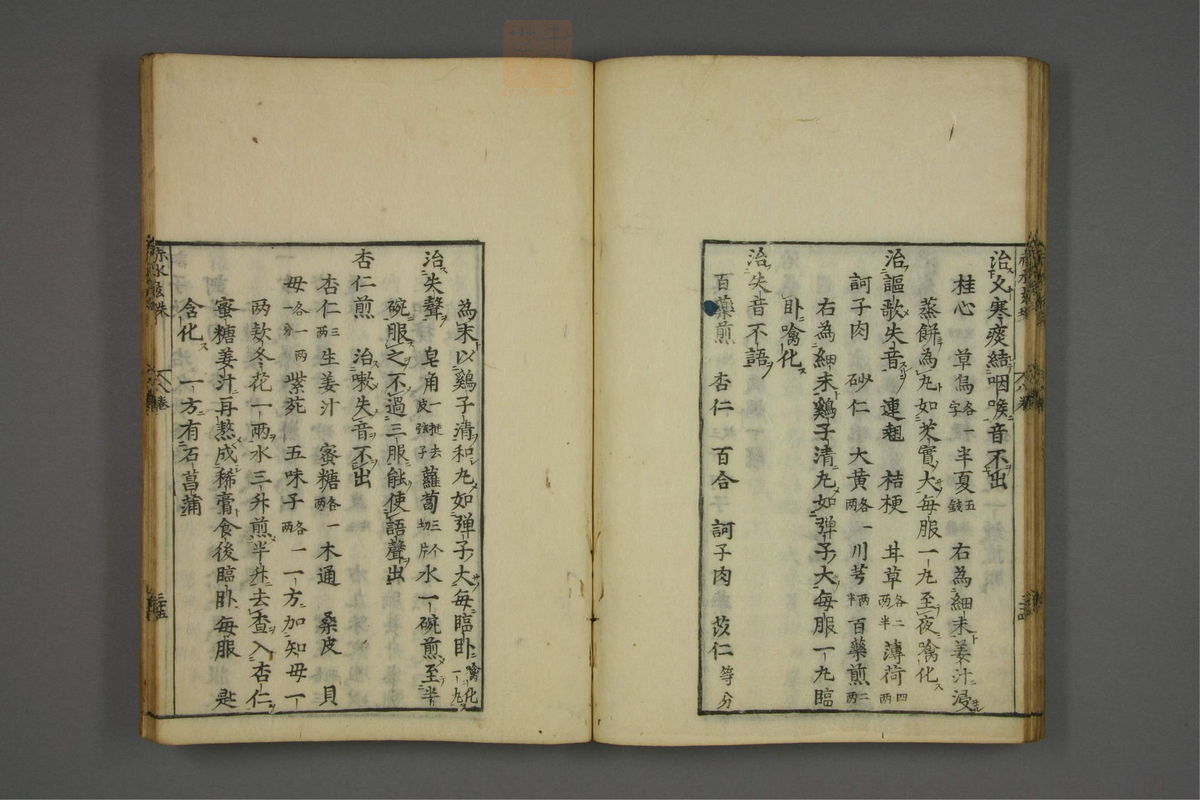 治久寒痰結咽喉音不出
桂心 草烏各一字 半夏五錢 右為細末姜汁浸
蒸餅為丸如芡實大每服一丸至夜噙化
治謳歌失音 連翹 桔梗 甘草各二兩半 薄荷四兩
訶子肉 砂仁 大黄各一兩 川芎一兩半 百藥煎二兩
右為細末鷄子清丸如弹子大每服一丸臨
卧噙化
治失音不語
百藥煎 杏仁 百合 訶子肉 苡仁等分
為末以鷄子清和丸如弹子大每臨卧噙化一丸
治失聲 皂角一挺去皮弦子 蘿蔔三个切片 水一碗煎至半
碗服之不過三服能使語聲出
杏仁煎 治嗽失音不出
杏仁三兩 生姜汁 蜜糖各一兩 木通 桑皮 貝
母各一兩一分 紫苑 五味子各一兩 一方加知母一
两款冬花一两水三升煎半升去查入杏仁
蜜糖姜汁再熬成稀膏食後臨卧每服 匙
含化 一方有石菖蒲
赤水玄珠
卷
三十五